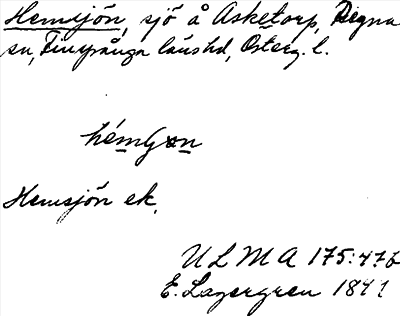 Hemsjön, sjö å Asketorp, Regna
sn, Finspånga länshd, Österg. l.
Hemsjön ek.
ULMA 175:476
E. Lagergren 1891